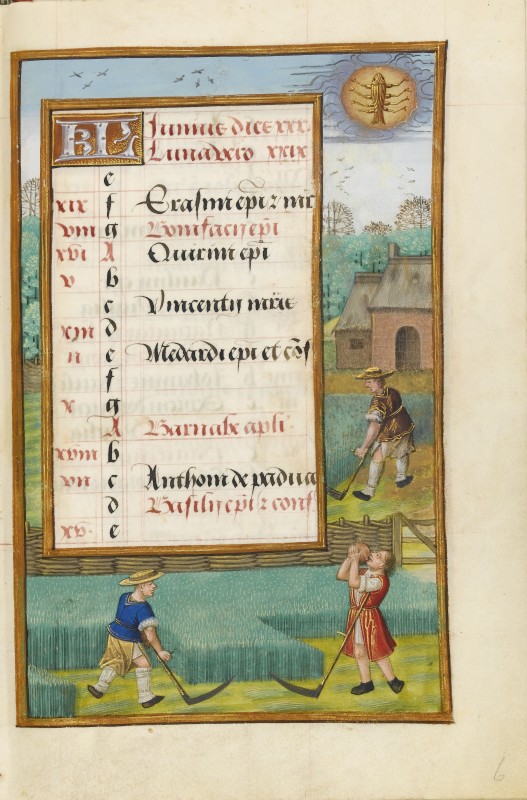 KL Junius dies xxx.
Luna vero xxix
e
xix f Erasmi epi z mr
viii g Bonifacij epi
xvi A Quirini epi
v b
c Vincentij mris
xiii d
ii e Medardi epi et cōf
f
x g
A Barnabe apli
xviii b
vii c Anthoni de padua
d Basilij epi z conf
xv e
6